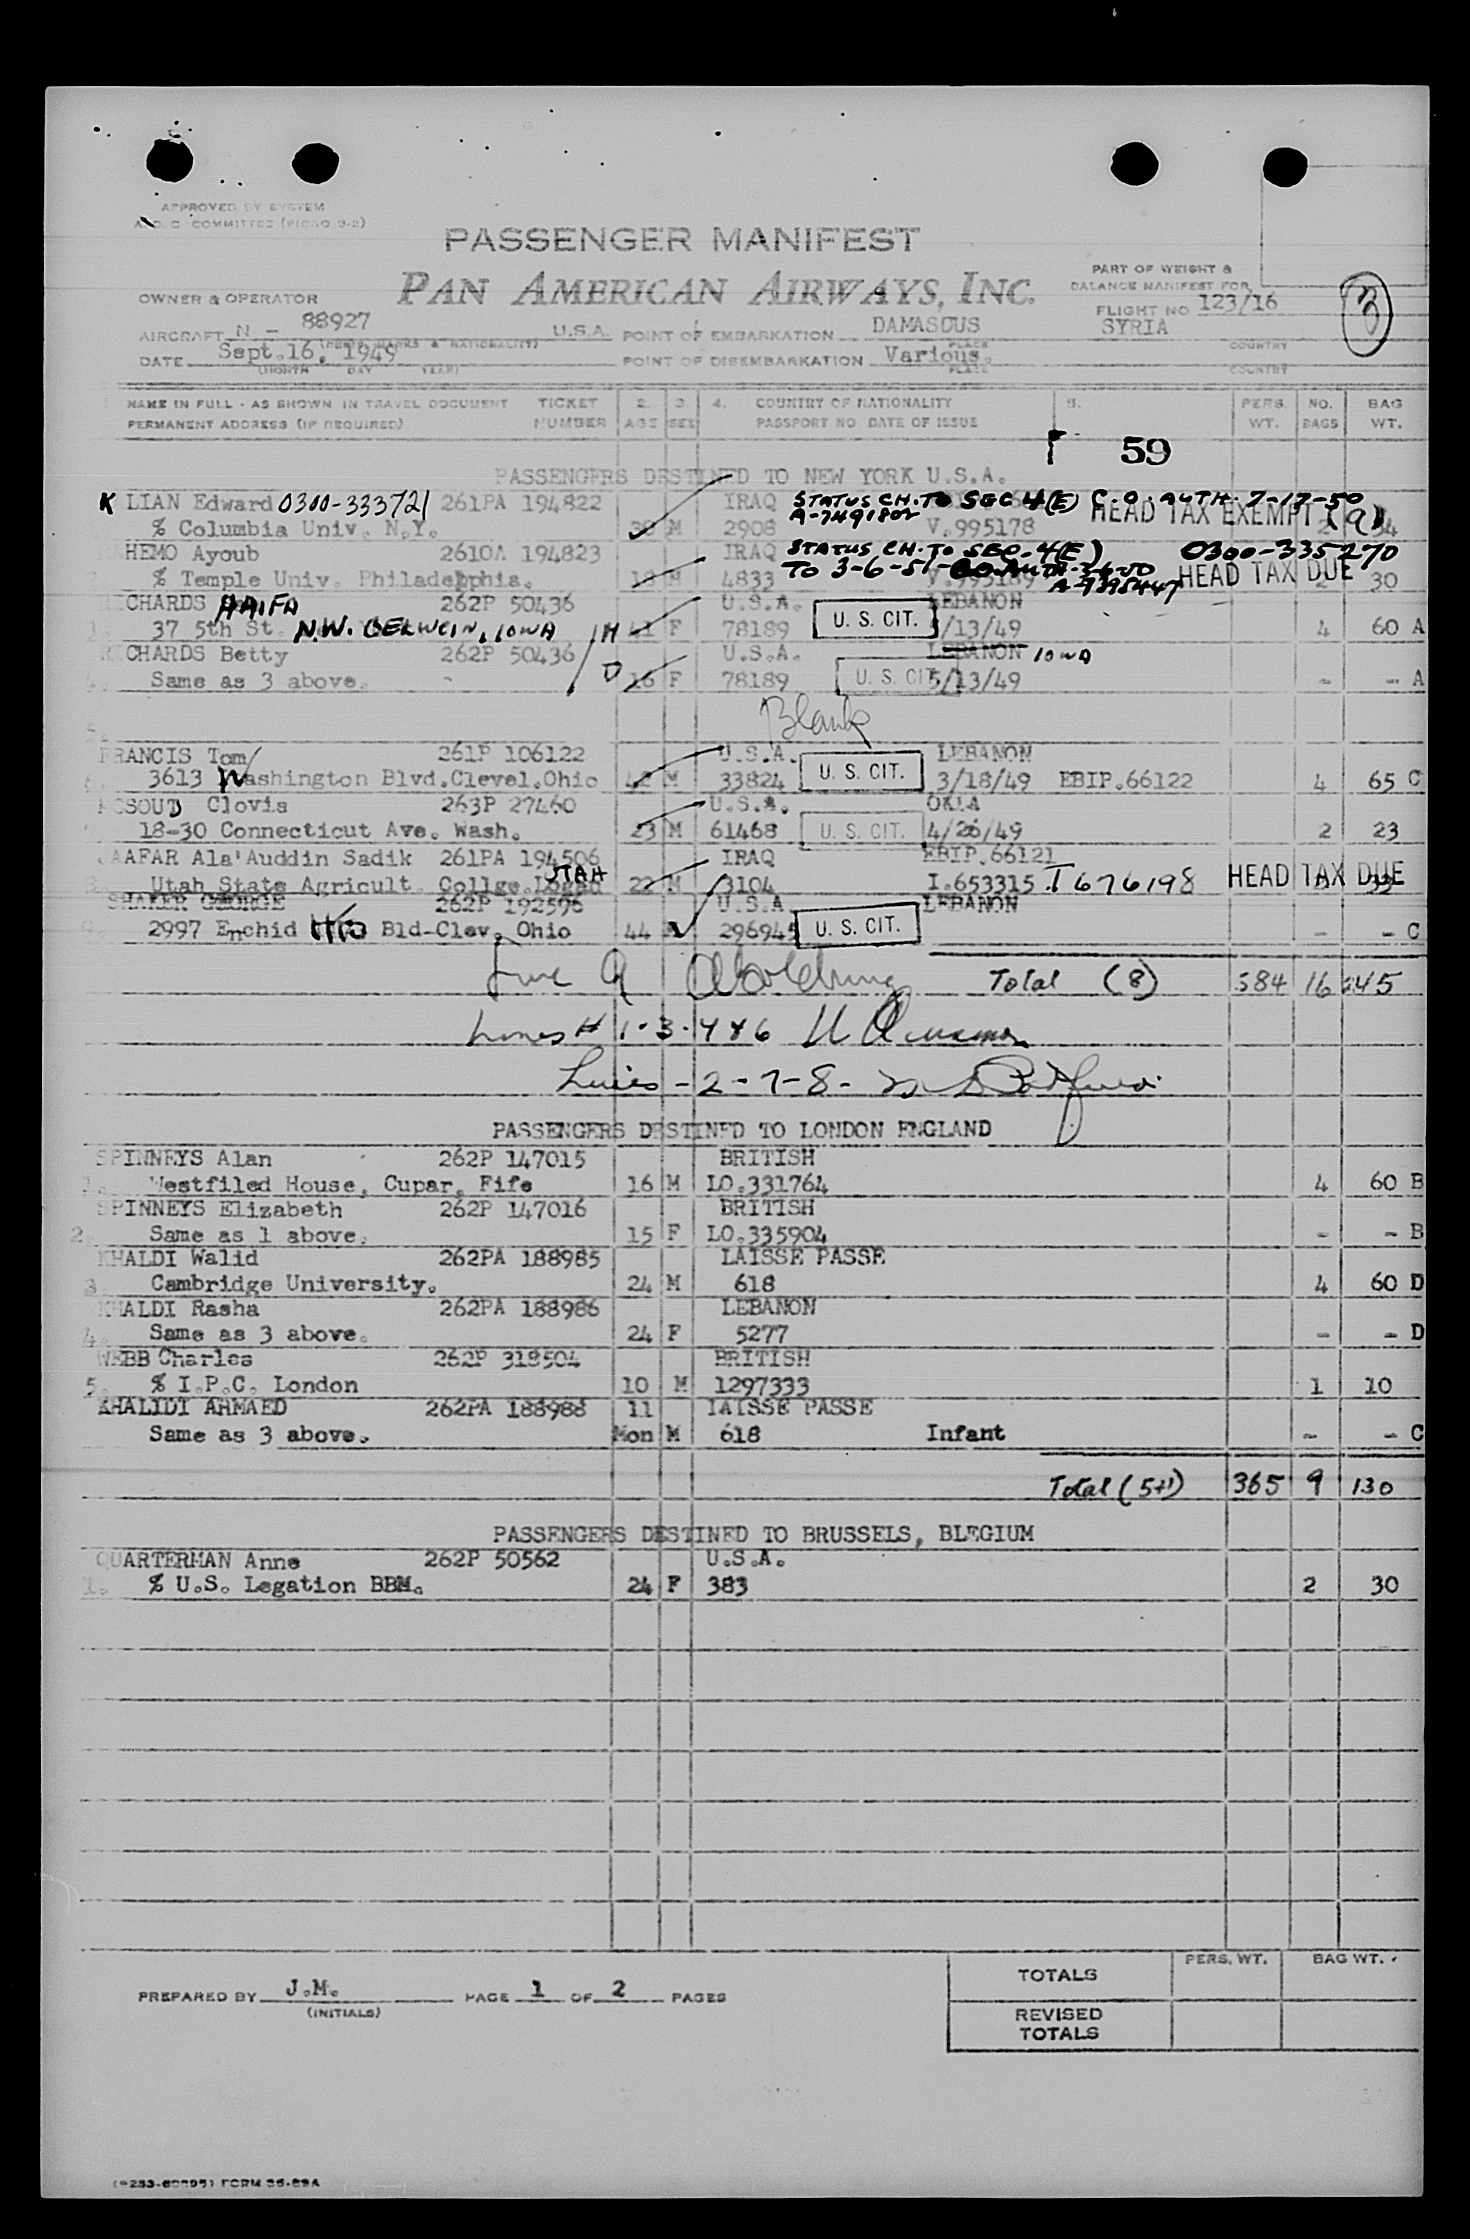 APPROVED BY SYSTEM
COMMITTEE (PICAO 9-2)
PASSENGER MANIFEST
PAN AMERICAN AIRWAYS, INC.
PART OF WEIGHT &
BALANCE MANIFEST FOR
FLIGHT NO 123/16
3
OWNER & OPERATOR
AIRCRAFT N - 88927 U.S.A. POINT OF EMBARKATION DAMASCUS SYRIA
PLACE COUNTRY
DATE Sept.16, 1949 POINT OF DISEMBARKATION Various.
(MONTH DAY YEAR) PLACE COUNTRY
NAME IN FULL - AS SHOWN IN TRAVEL DOCUMENT TICKET 2. 3. 4. COUNTRY OF NATIONALITY 5. PERS. NO. BAG
PERMANENT ADDRESS (IF REQUIRED) NUMBER AGE SEX PASSPORT NO DATE OF ISSUE WT. BAGS WT.
59
PASSENGERS DESTINED TO NEW YORK U.S.A.
K LIAN Edward 0300-333721 261PA 194822 IRAQ STATUS CH. TO SEC 4(E) C.O. AUTH. 7-17-50
A-7491802 HEAD TAX EXEMPT (9)
% Columbia Univ. N.Y. 30 M 2908 V.995178 2 34
HEMO Ayoub 2610A 194823 IRAQ STATUS CH. TO SEC. 4(E) 0300-335270
TO 3-6-51 HEAD TAX DUE
% Temple Univ. Philadelphia. 18 M 4833 A-7398447 30
CHARDS HAIFA 262P 50436 U.S.A. U. S. CIT. LEBANON
37 5th St. N.W. OELWEIN, IOWA M 41 F 78189 /13/49 4 60 A
CHARDS Betty 262P 50436 U.S.A. LEBANON IOWA
Same as 3 above. - D 16 F 78189 U. S. CIT 5/13/49 - - A
5. Blank
FRANCIS Tom 261P 106122 U.S.A. U. S. CIT. LEBANON
3613 Washington Blvd.Clevel.Ohio 42 M 33824 3/18/49 EBIP.66122 4 65 C
SOUD Clovis 263P 27460 U.S.A. OKLA
18-30 Connecticut Ave. Wash. 23 M 61468 U. S. CIT. 4/26/49 2 23
JAAFAR Ala'Auddin Sadik 261PA 194506 IRAQ EBIP.66121
UTAH
Utah State Agricult. Collge.Logan 22 M 3104 I.653315 T676198 HEAD TAX DUE 33
SHAKER GEORGE 262P 192596 U.S.A LEBANON
2997 Enchid Bld-Clev, Ohio 44 296945 U. S. CIT. - - C
Total (8) 584 16 245
Lines # 1-3-4 & 6
Lines - 2-7-8-
PASSENGERS DESTINED TO LONDON ENGLAND
SPINNEYS Alan 262P 147015 BRITISH
1. Westfiled House, Cupar. Fife 16 M LO.331764 4 60 B
SPINNEYS Elizabeth 262P 147016 BRITISH
2. Same as 1 above. 15 F LO.335904 - - B
KHALDI Walid 262PA 188985 LAISSE PASSE
3. Cambridge University. 24 M 618 4 60 D
KHALDI Rasha 262PA 188986 LEBANON
4. Same as 3 above. 24 F 5277 - - D
WEBB Charles 262P 318504 BRITISH
5. % I.P.C. London 10 M 1297333 1 10
KHALIDI AHMAED 262PA 188988 11 LAISSE PASSE
Same as 3 above. Mon M 618 Infant - - C
Total (5+1) 365 9 130
PASSENGERS DESTINED TO BRUSSELS, BLEGIUM
QUARTERMAN Anne 262P 50562 U.S.A.
1. % U.S. Legation BBM. 24 F 383 2 30
PERS. WT. BAG WT.
TOTALS
PREPARED BY J.M. PAGE 1 OF 2 PAGES
(INITIALS)
REVISED
TOTALS
FORM 36-89A